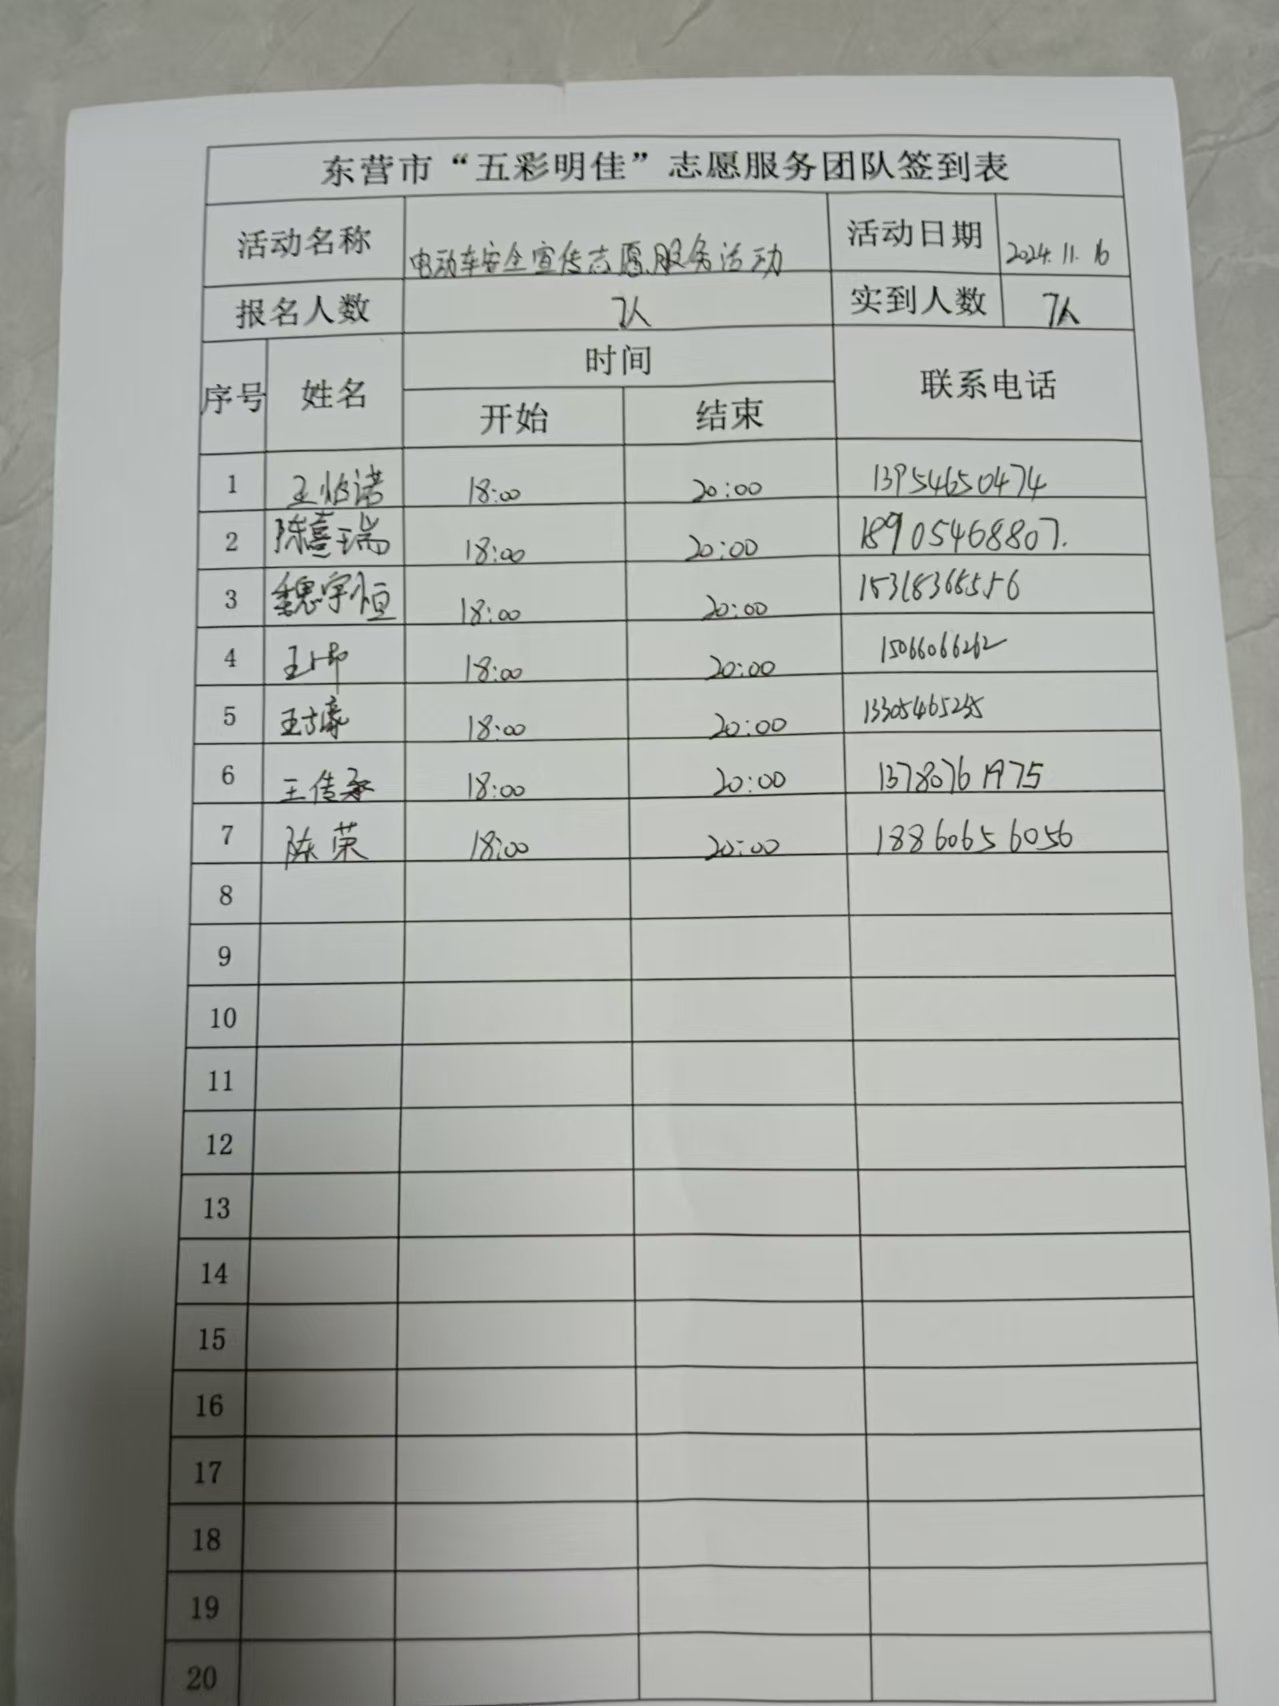 东营市“五彩明佳”志愿服务团队签到表
活动名称 电动车安全宣传志愿服务活动 活动日期 2024.11.16
报名人数 7人 实到人数 7人
序号 姓名 时间 联系电话
开始 结束
1 王怡诺 18:00 20:00 13954650474
2 陈喜瑞 18:00 20:00 18905468807.
3 魏宇恒 18:00 20:00
4 王帅 18:00 20:00 15066066262
5 18:00 20:00
6 王传 18:00 20:00 13780761975
7 陈荣 18:00 20:00 18860656056
8
9
10
11
12
13
14
15
16
17
18
19
20